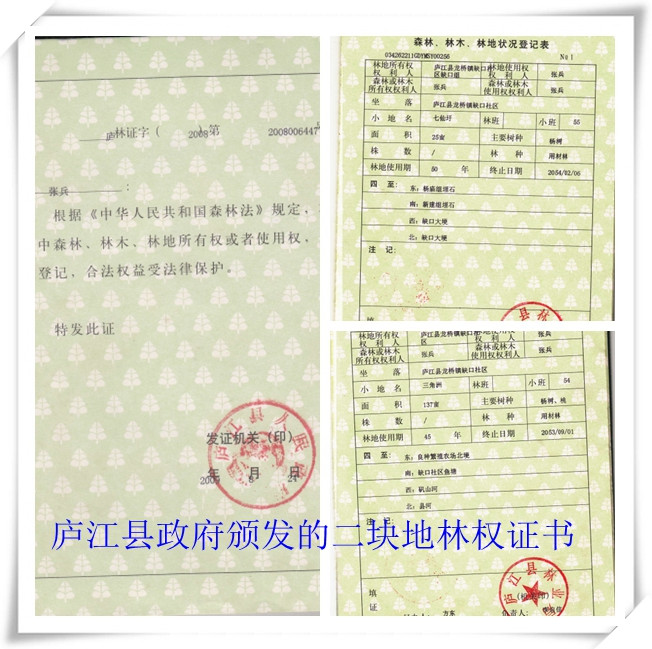 庐林证字（ 2008 ）第 2008006447
张兵 ：
根据《中华人民共和国森林法》规定，
中森林、林木、林地所有权或者使用权，
登记，合法权益受法律保护。
特发此证
发证机关（印）
年 月 日
2009 8 21
森林、林木、林地状况登记表
034262211GDYMSY00256 No 1
林地所有权权利人 庐江县龙桥镇缺口社区缺口组 林地使用权权利人 张兵
森林或林木所有权权利人 张兵 森林或林木使用权权利人 张兵
坐 落 庐江县龙桥镇缺口社区
小 地 名 七仙圩 林班 小 班 55
面 积 25亩 主要树种 杨树
株 数 / 林 种 用材林
林地使用期 50 年 终止日期 2054/02/06
四 至： 东：杨庙组埋石
南：新建组埋石
西：缺口大埂
北：缺口大埂
注 记：
填
林地所有权权利人 庐江县龙桥镇缺口社区 林地使用权权利人 张兵
森林或林木所有权权利人 张兵 森林或林木使用权权利人 张兵
坐 落 庐江县龙桥镇缺口社区
小 地 名 三角洲 林班 小 班 54
面 积 137亩 主要树种 杨树、桃
株 数 / 林 种 用材林
林地使用期 45 年 终止日期 2053/09/01
四 至： 东：良种繁殖农场北埂
南：缺口社区鱼塘
西：矾山河
北：县河
注 记：
填
证
方东 负责人：
庐江县政府颁发的二块地林权证书